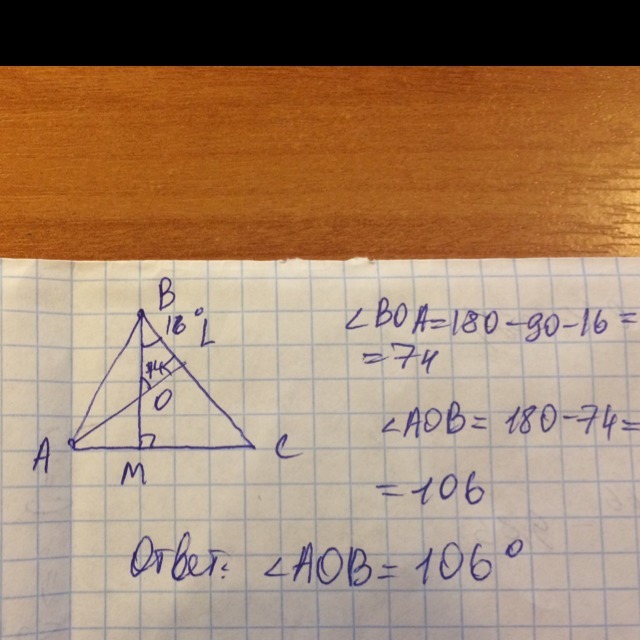 B
18° L
74
O
A
M
C
∠BOA=180-90-16=
=74
∠AOB= 180-74=
=106
Ответ: ∠AOB= 106°